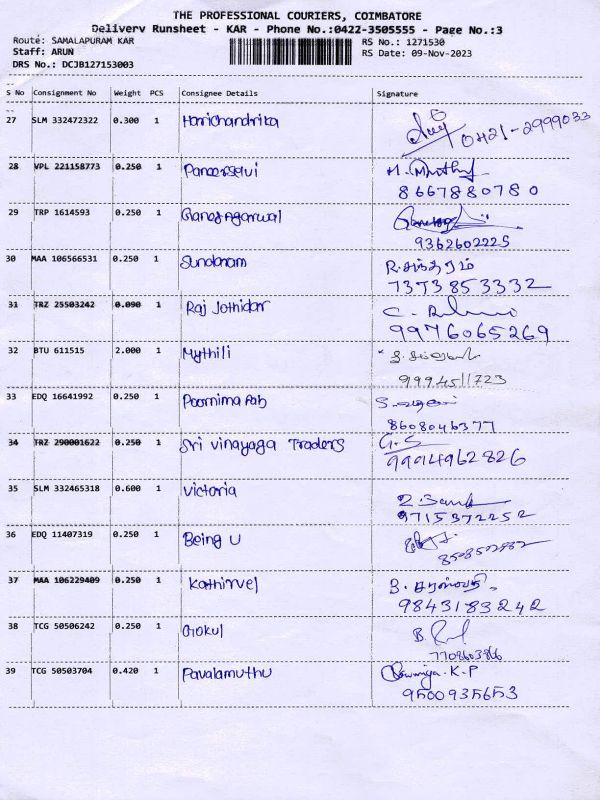 THE PROFESSIONAL COURIERS, COIMBATORE
Delivery Runsheet - KAR - Phone No.:0422-3505555 - Page No.:3
Route: SAMALAPURAM KAR RS No.: 1271530
Staff: ARUN RS Date: 09-Nov-2023
DRS No.: DCJB127153003
S No Consignment No Weight PCS Consignee Details Signature
27 SLM 332472322 0.300 1 Harichandrika 0421-2999033
28 VPL 221158773 0.250 1 Paneerselvi
8667880780
29 TRP 1614593 0.250 1 Ganesagarwal
9362602225
30 MAA 106566531 0.250 1 Sundaram R.சுந்தரம்
7373853332
31 TRZ 25503242 0.090 1 Raj Jothidar
9976065269
32 BTU 611515 2.000 1 Mythili
9994511723
33 EDQ 16641992 0.250 1 Poornima Pab
8608046377
34 TRZ 290001622 0.250 1 Sri Vinayaga Traders G.S
9994962826
35 SLM 332465318 0.600 1 Victoria
9715372252
36 EDQ 11407319 0.250 1 Being U
37 MAA 106229409 0.250 1 Kathirvel
9843183242
38 TCG 50506242 0.250 1 Gokul
7708603866
39 TCG 50503704 0.420 1 Pavalamuthu Sowmiya.K.P
9500935653